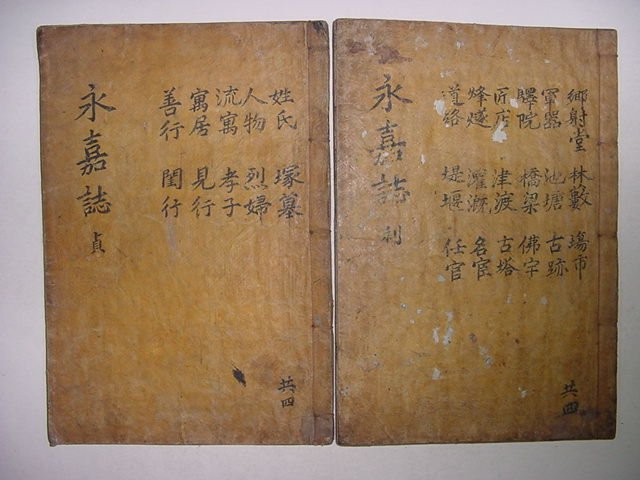 鄕射堂 林藪 塲市
軍器 池塘 古跡
驛院 橋梁 佛宇
匠店 津渡 古塔
烽燧 灌漑 名宦
道路 堤堰 任官
永嘉誌 利
共四
姓氏 塚墓
人物 烈婦
流寓 孝子
寓居 見行
善行 閨行
永嘉誌 貞
共四